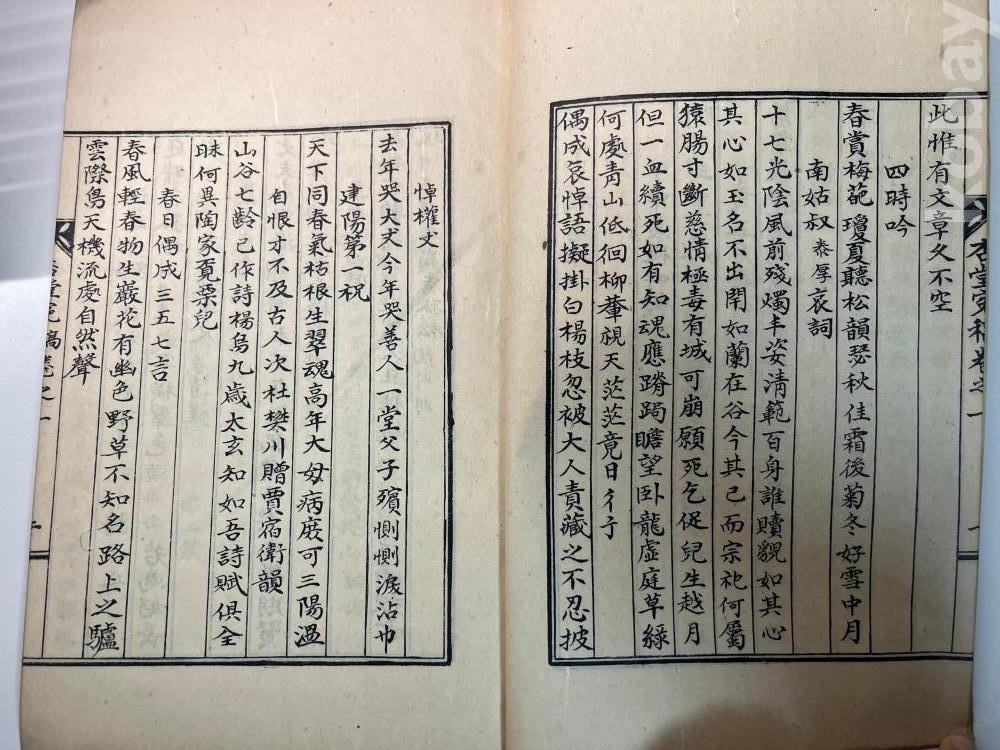 此惟有文章久不空
四時吟
春賞梅苑瓊夏聽松韻瑟秋佳霜後菊冬好雪中月
南姑叔泰厚哀詞
十七光陰風前殘燭丰姿淸範百身誰贖貌如其心
其心如玉名不出閈如蘭在谷今其已而宗祀何屬
猿腸寸斷慈情極毒有城可崩願死乞促兒生越月
但一血續死如有知魂應蹐跼瞻望卧龍虛庭草綠
何處靑山低徊柳輂視天茫茫竟日彳亍
偶成哀悼語擬掛白楊枝忽被大人責藏之不忍披
杏堂定稿卷之一
一
悼權丈
去年哭大夫今年哭善人一堂父子殯惻惻淚沾巾
建陽第一祝
天下同春氣枯根生翠魂高年大母病庶可三陽溫
自恨才不及古人次杜樊川贈賈宿衛韻
山谷七齡已作詩楊烏九歲太玄知如吾詩賦俱全
昧何異陶家覓栗兒
春日偶成三五七言
春風輕春物生巖花有幽色野草不知名路上之驢
雲際鳥天機流處自然聲
杏堂定稿卷之一
kobay